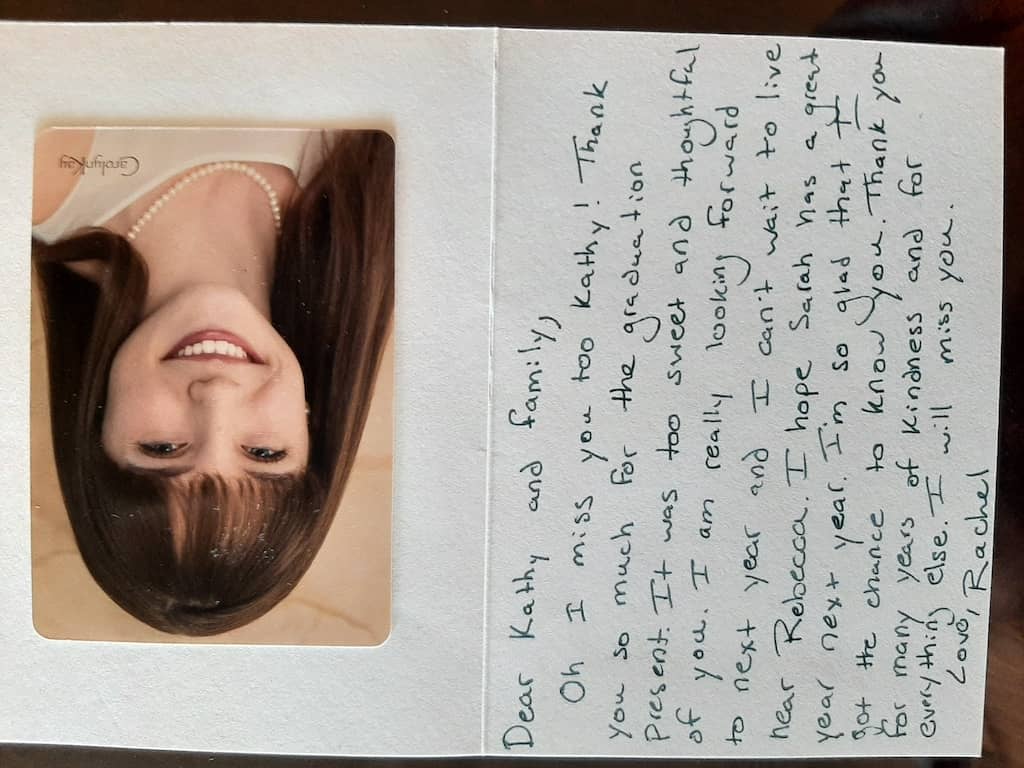 CarolynKay
Dear Kathy and family,
Oh I miss you too Kathy! Thank
you so much for the graduation
present. It was too sweet and thoughtful
of you. I am really looking forward
to next year and I can't wait to live
near Rebecca. I hope Sarah has a great
year next year. I'm so glad that I
got the chance to know you. Thank you
for many years of kindness and for
everything else. I will miss you.
Love, Rachel